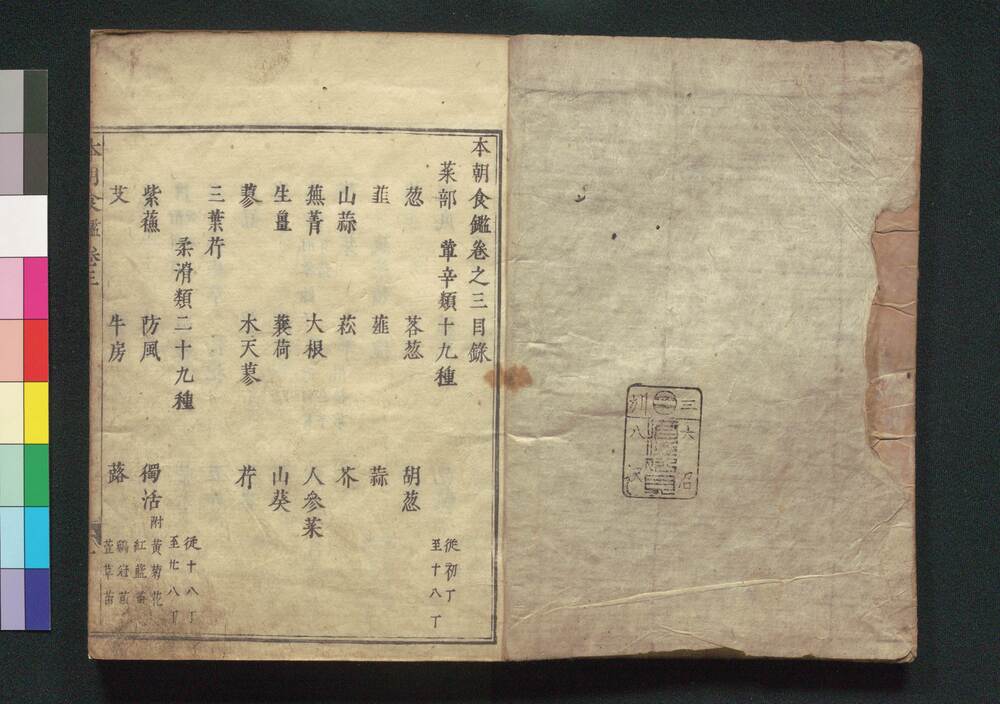 本朝食鑑卷之三目錄
菜部 葷辛類十九種 從初丁至十八丁
葱 茖葱 胡葱
韭 薤 蒜
山蒜 菘 芥
蕪菁 大根 人參菜
生薑 蘘荷 山葵
蓼 木天蓼 芹
三葉芹
柔滑類二十九種 從十八丁至廿八丁
紫蘇 防風 獨活 附黃菊花 紅藍苗
艾 牛房 蕗 鷄冠苗 萱草苗
本朝食鑑 卷三